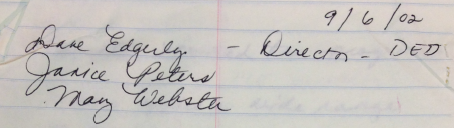 9/6/02
Dave Edgerly - Director - DED
Janice Peters
Mary Webster